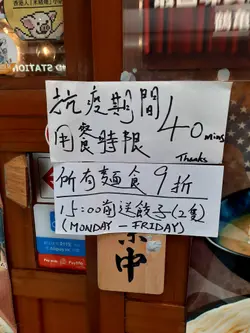 ND STATION
抗疫期間
用餐時限
40 mins
Thanks
所有麵食 9折
15:00前送餃子(2隻)
(MONDAY - FRIDAY)
中